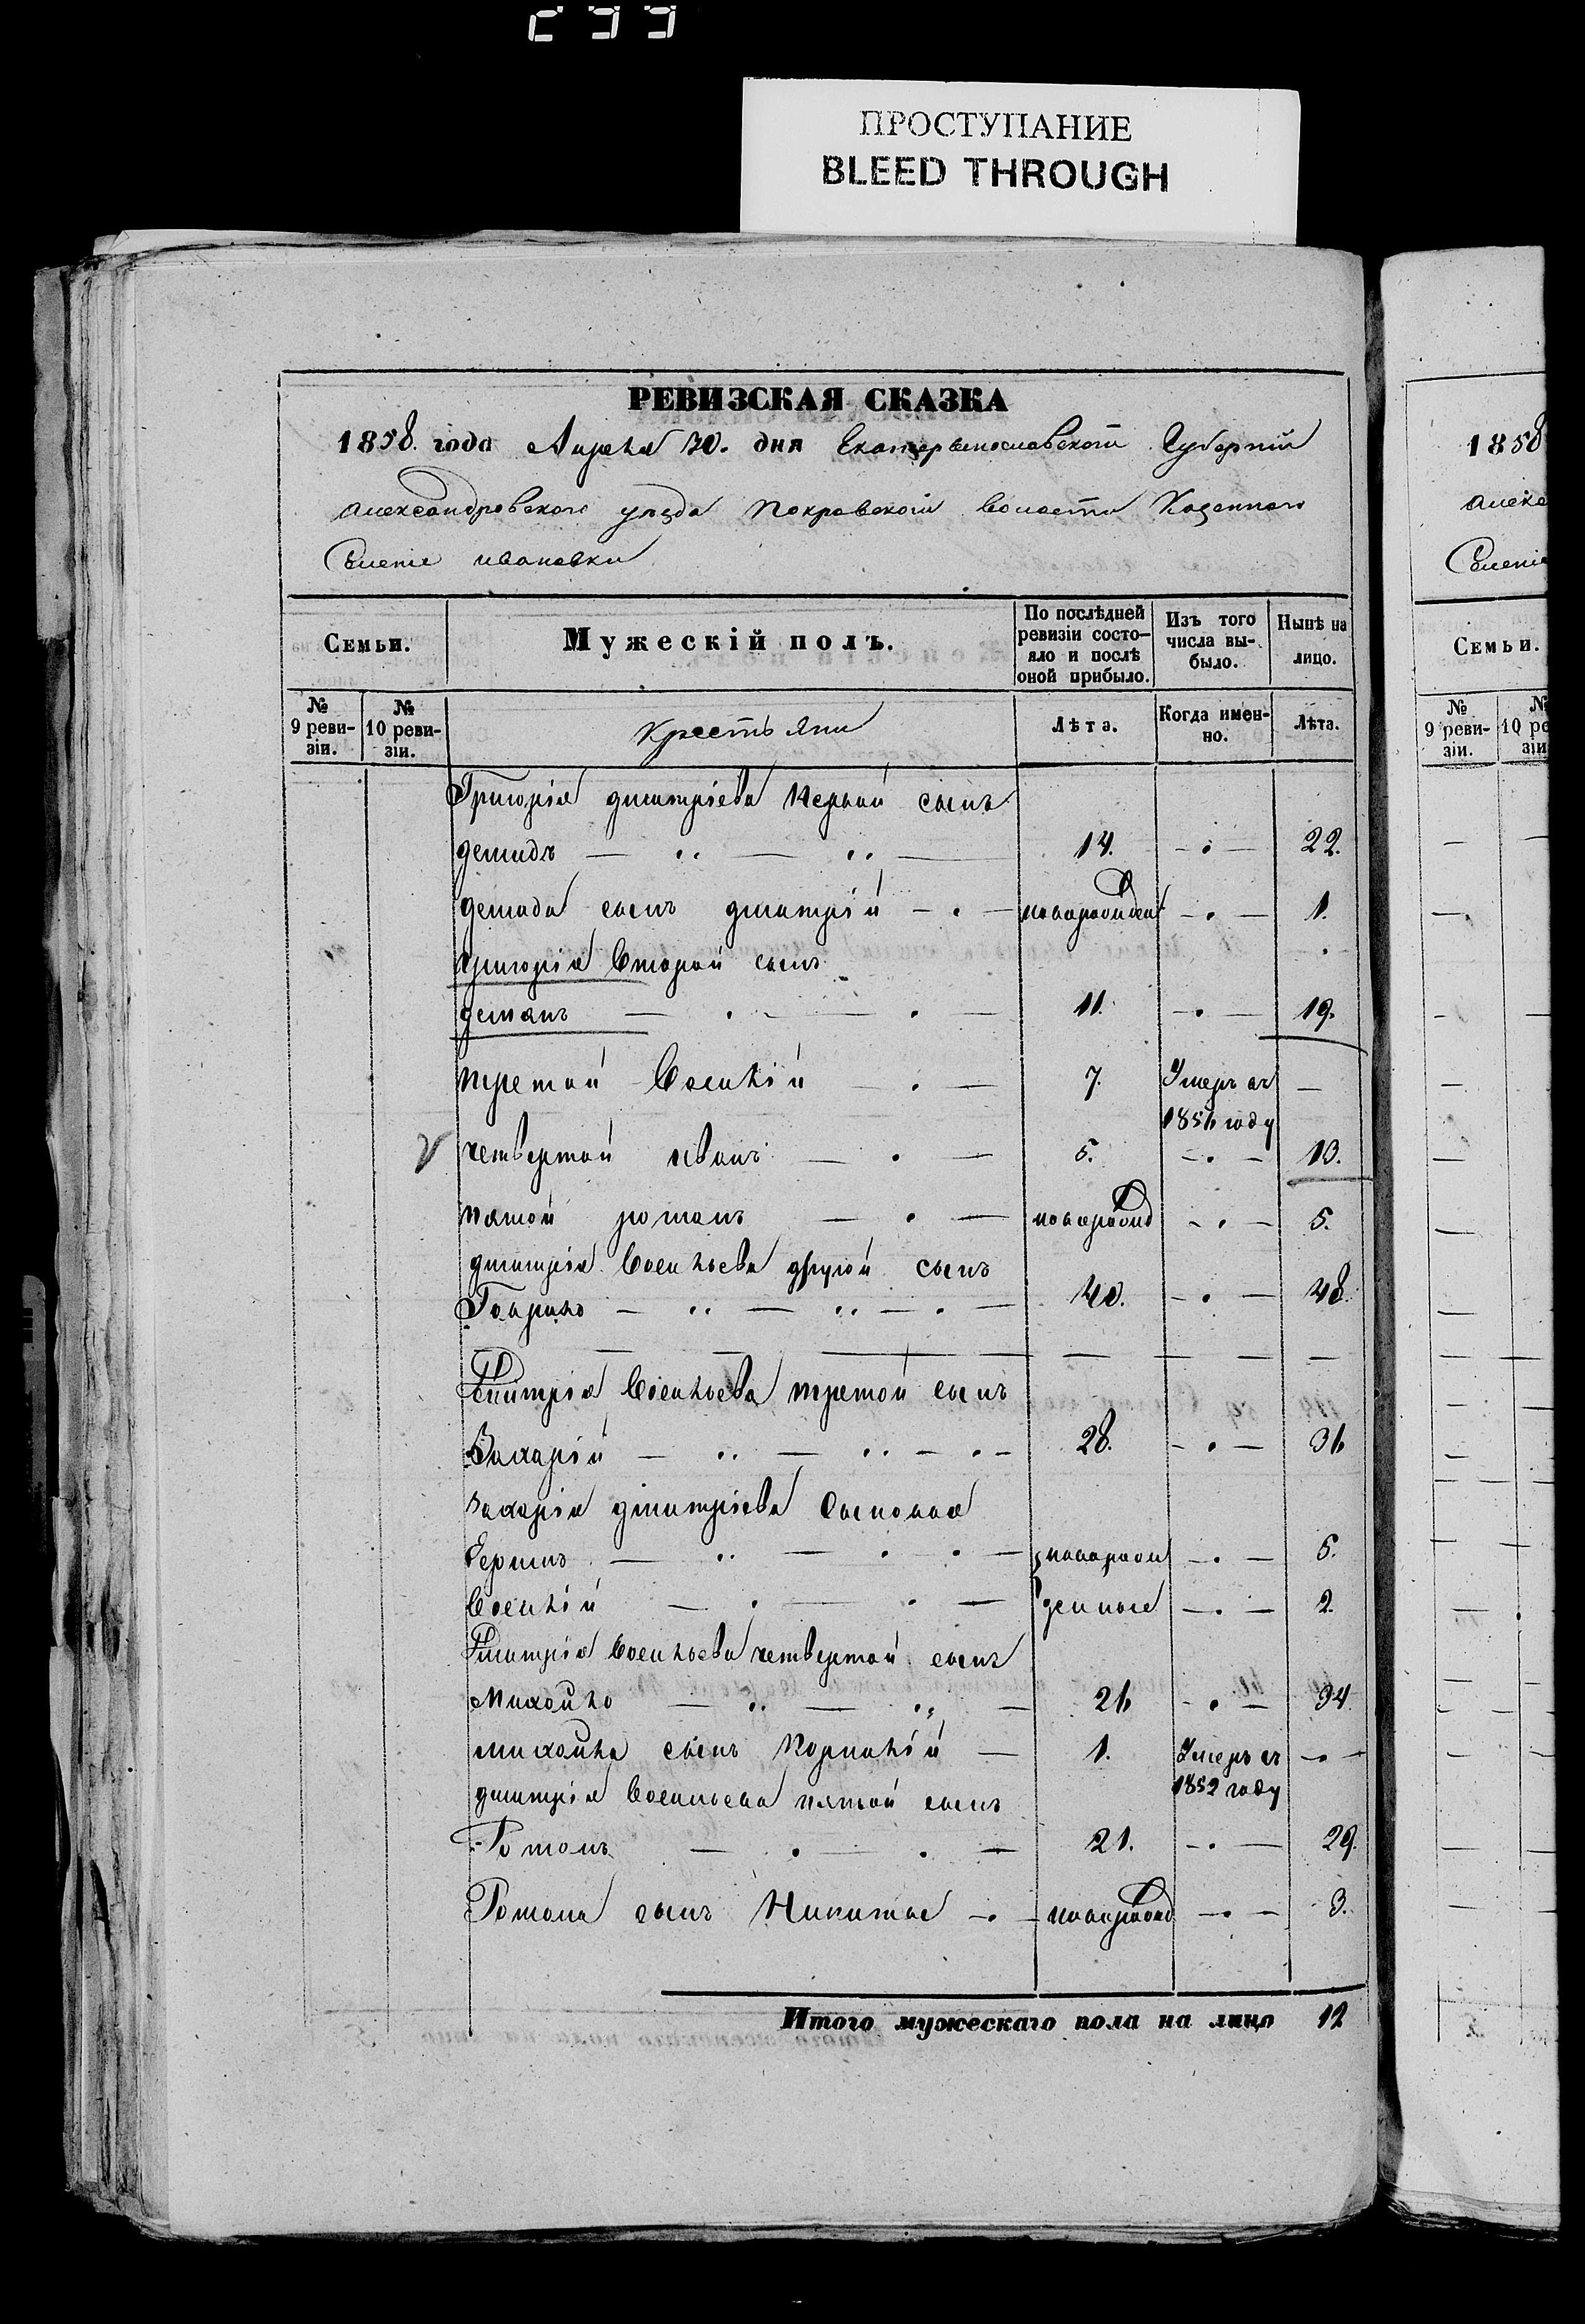 ПРОСТУПАНИЕ
BLEED THROUGH
РЕВИЗСКАЯ СКАЗКА
1858. года Апреля 30. дня Екатеринославской Губернии
Александровского уезда Покровской волости Казенного
Селение ивановки
Семьи. Мужескій полъ. По послѣдней ревизіи состо-яло и послѣ оной прибыло. Изъ того числа вы-было. Нынѣ на лицо.
№ 9 реви-зіи. № 10 реви-зіи. Крестьяни Лѣта. Когда имен-но. Лѣта.
Григорія дмитріева Первой сынъ
демидъ 14. 22.
демида сынъ дмитрій 1.
григорія Второй сынъ
демянъ 11. 19.
третой Василій 7. Умеръ въ —
1856 году
четвертой иванъ 5. 13.
пятой романъ новорожд 5.
дмитрія Васильева другой сынъ
Гаврило 40. 48.
Дмитрія Васильева третой сынъ
Захарій 28. 36
захарія дмитріева Сыновья
новорож 5.
Василій денные 2.
Дмитрія Васильева четвертой сынъ
Михайло 26 34.
михайла сынъ 1. Умеръ въ
1852 году
дмитрія Васильева пятой сынъ
Романъ 21. 29.
Романа сынъ Никита новорожд 3.
Итого мужескаго пола на лицо 12
1858
Алекс
Селеніе
Семьи.
№ 9 реви-зіи.